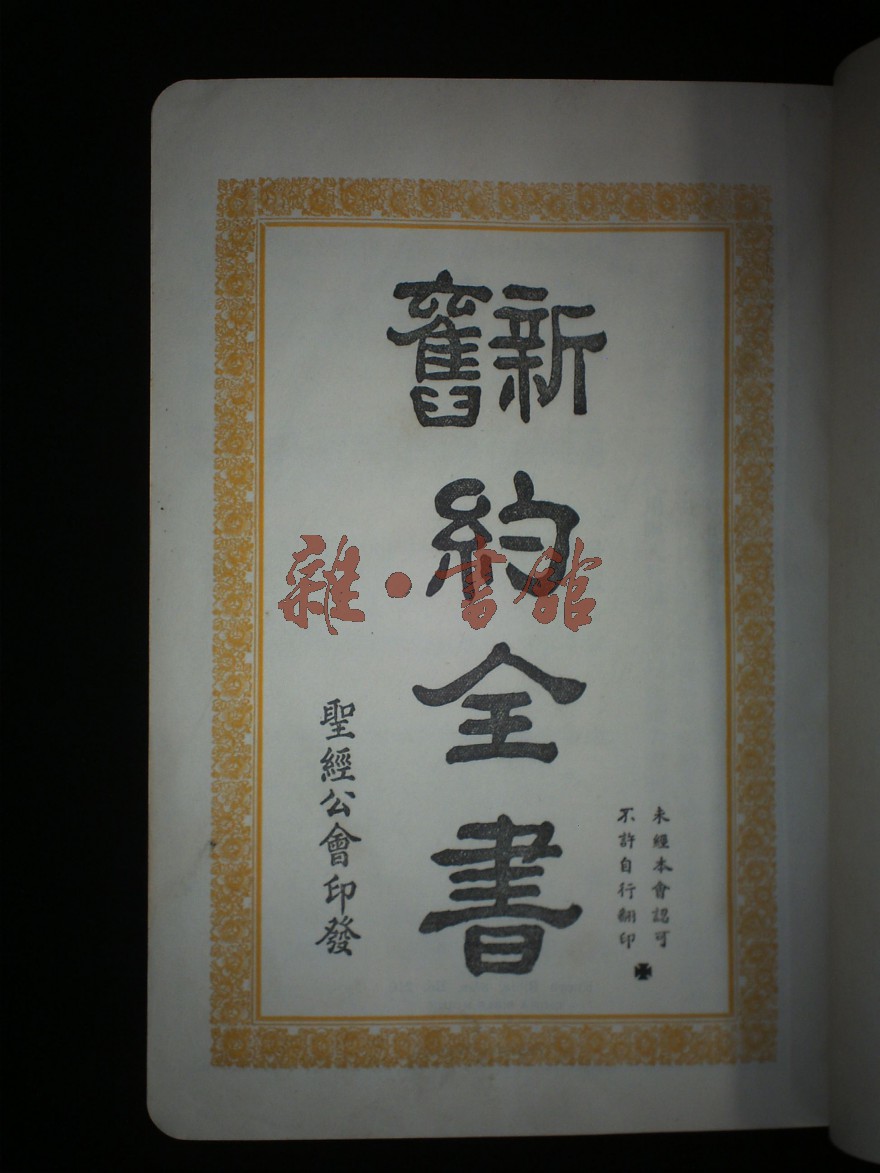 未經本會認可
不許自行翻印
新舊
約全書
聖經公會印發
雜·書館